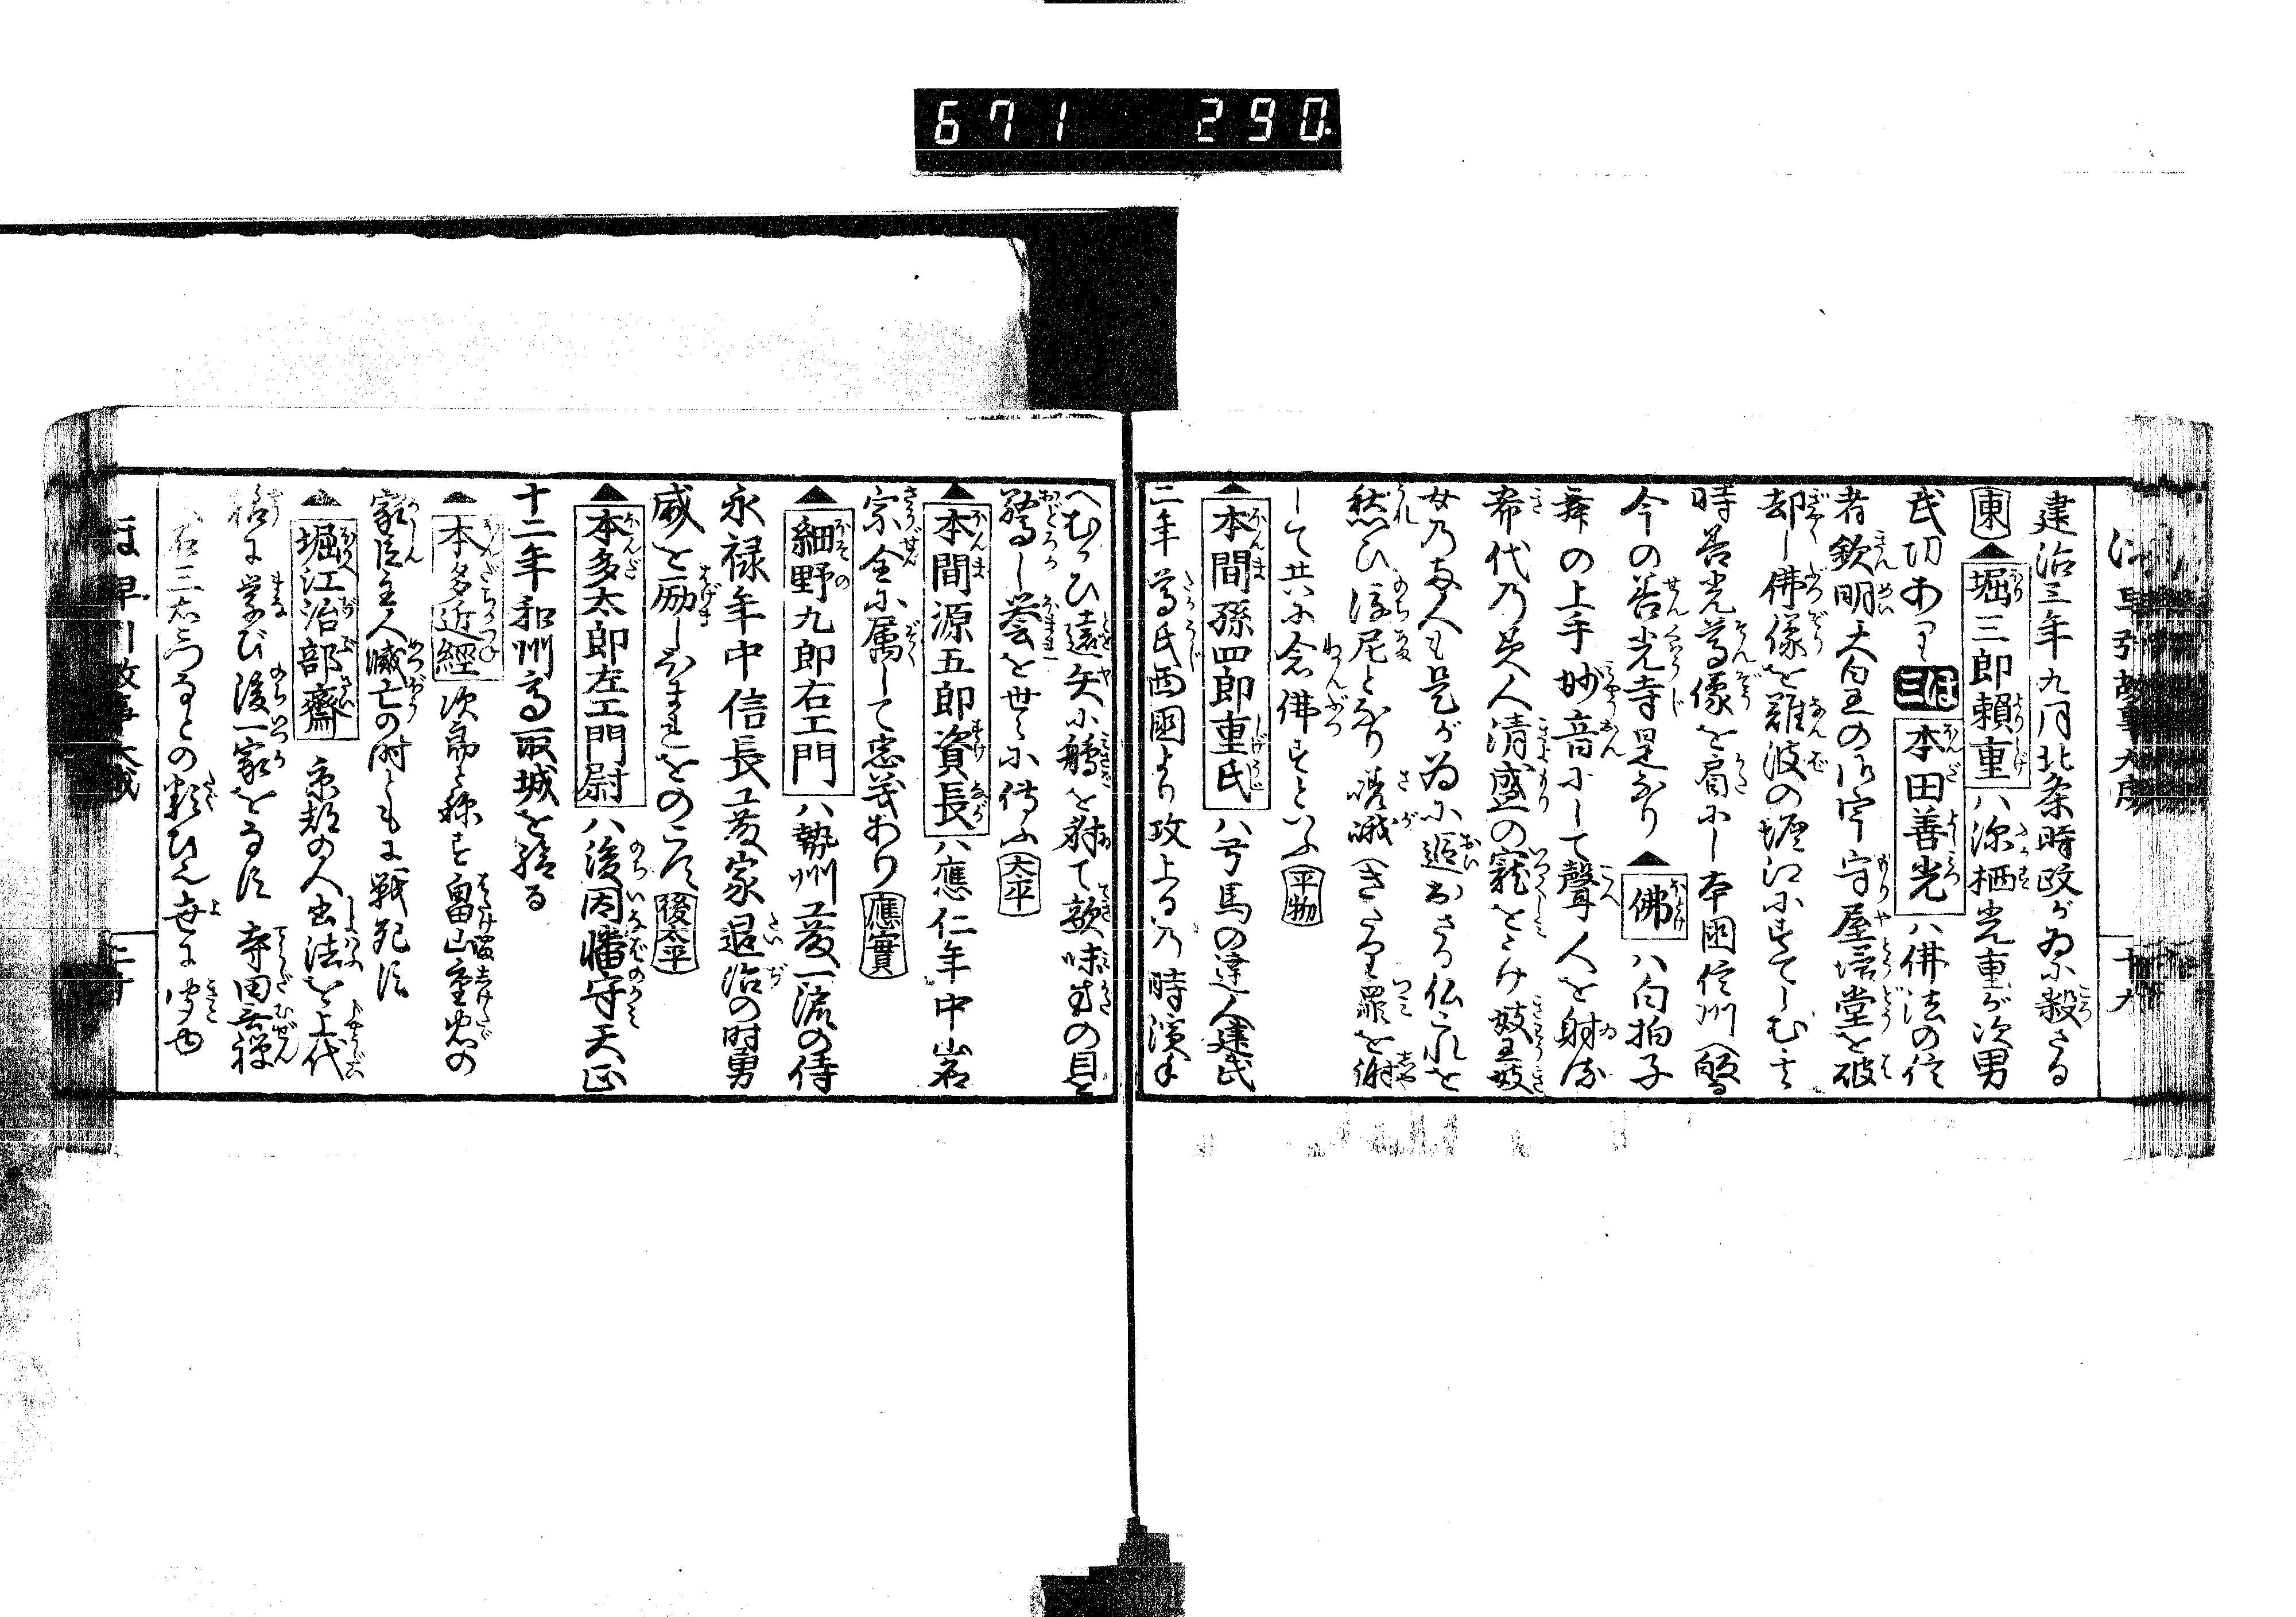 671 290
建治三年九月北条時政がために殺さる
東 ▲堀三郎頼重ハ深栖光重が次男
武功あり 本田善光ハ佛法の信
者欽明天白王の御宇守屋塔堂を破
却し佛像を難波の堀江にすてしむ
時善光尊像を肩にし本国信州へ皈る
今の善光寺是なり ▲佛ハ白拍子
舞の上手妙音にして聲人を
希代乃美人清盛の寵をうけ妓王妓
女乃両人も是が為に追出さる仏これを
愁ひ後尼となり嵯峨へきたり罪を謝
して共に念佛すといふ 平物
▲本間孫四郎重氏ハ弓馬の達人建武
三年尊氏西國より攻上る乃時
へむかひ遠矢に鵃を射て敵味方の目を
驚し誉を世に傳ふ 太平
▲本間源五郎資長ハ應仁年中山名
宗全に属して忠義あり 應實
▲細野九郎右エ門ハ勢州工藤一流の侍
永禄年中信長工藤家退治の时勇
威を励しほまれをのこす 後太平
▲本多太郎左エ門尉ハ後因幡守天正
十二年和州高取城を給る
▲本多近經次郎と称す畠山重忠の
家臣主人滅亡の时ともに戦死す
▲堀江治部齋 京都の人書法を上代
様に学び後一家をなす 寺田無禅